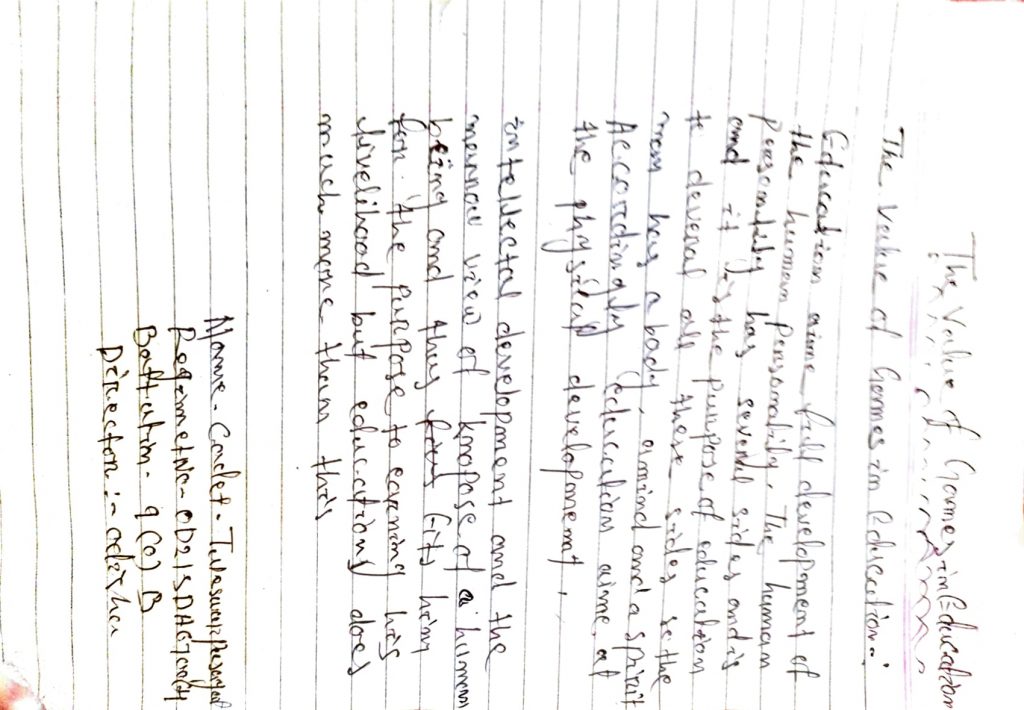 The Value of Games in Education
The Value of Games in Education:
Education aime full development of
the human personality. The human
personality has several sides and is
and it is the purpose of education
to deveral all there sides so the
man has a body, amind and a spirit
Accordingly education aime at
the physical development,
intellectal development and the
narrow view of knopose of a human
being and thus fits him
for the purpose to earning his
livelihood but educationy does
much more than this
Name - Cadet -
Regimet No -
Battalion - 9 (O) B
Director :- odisha